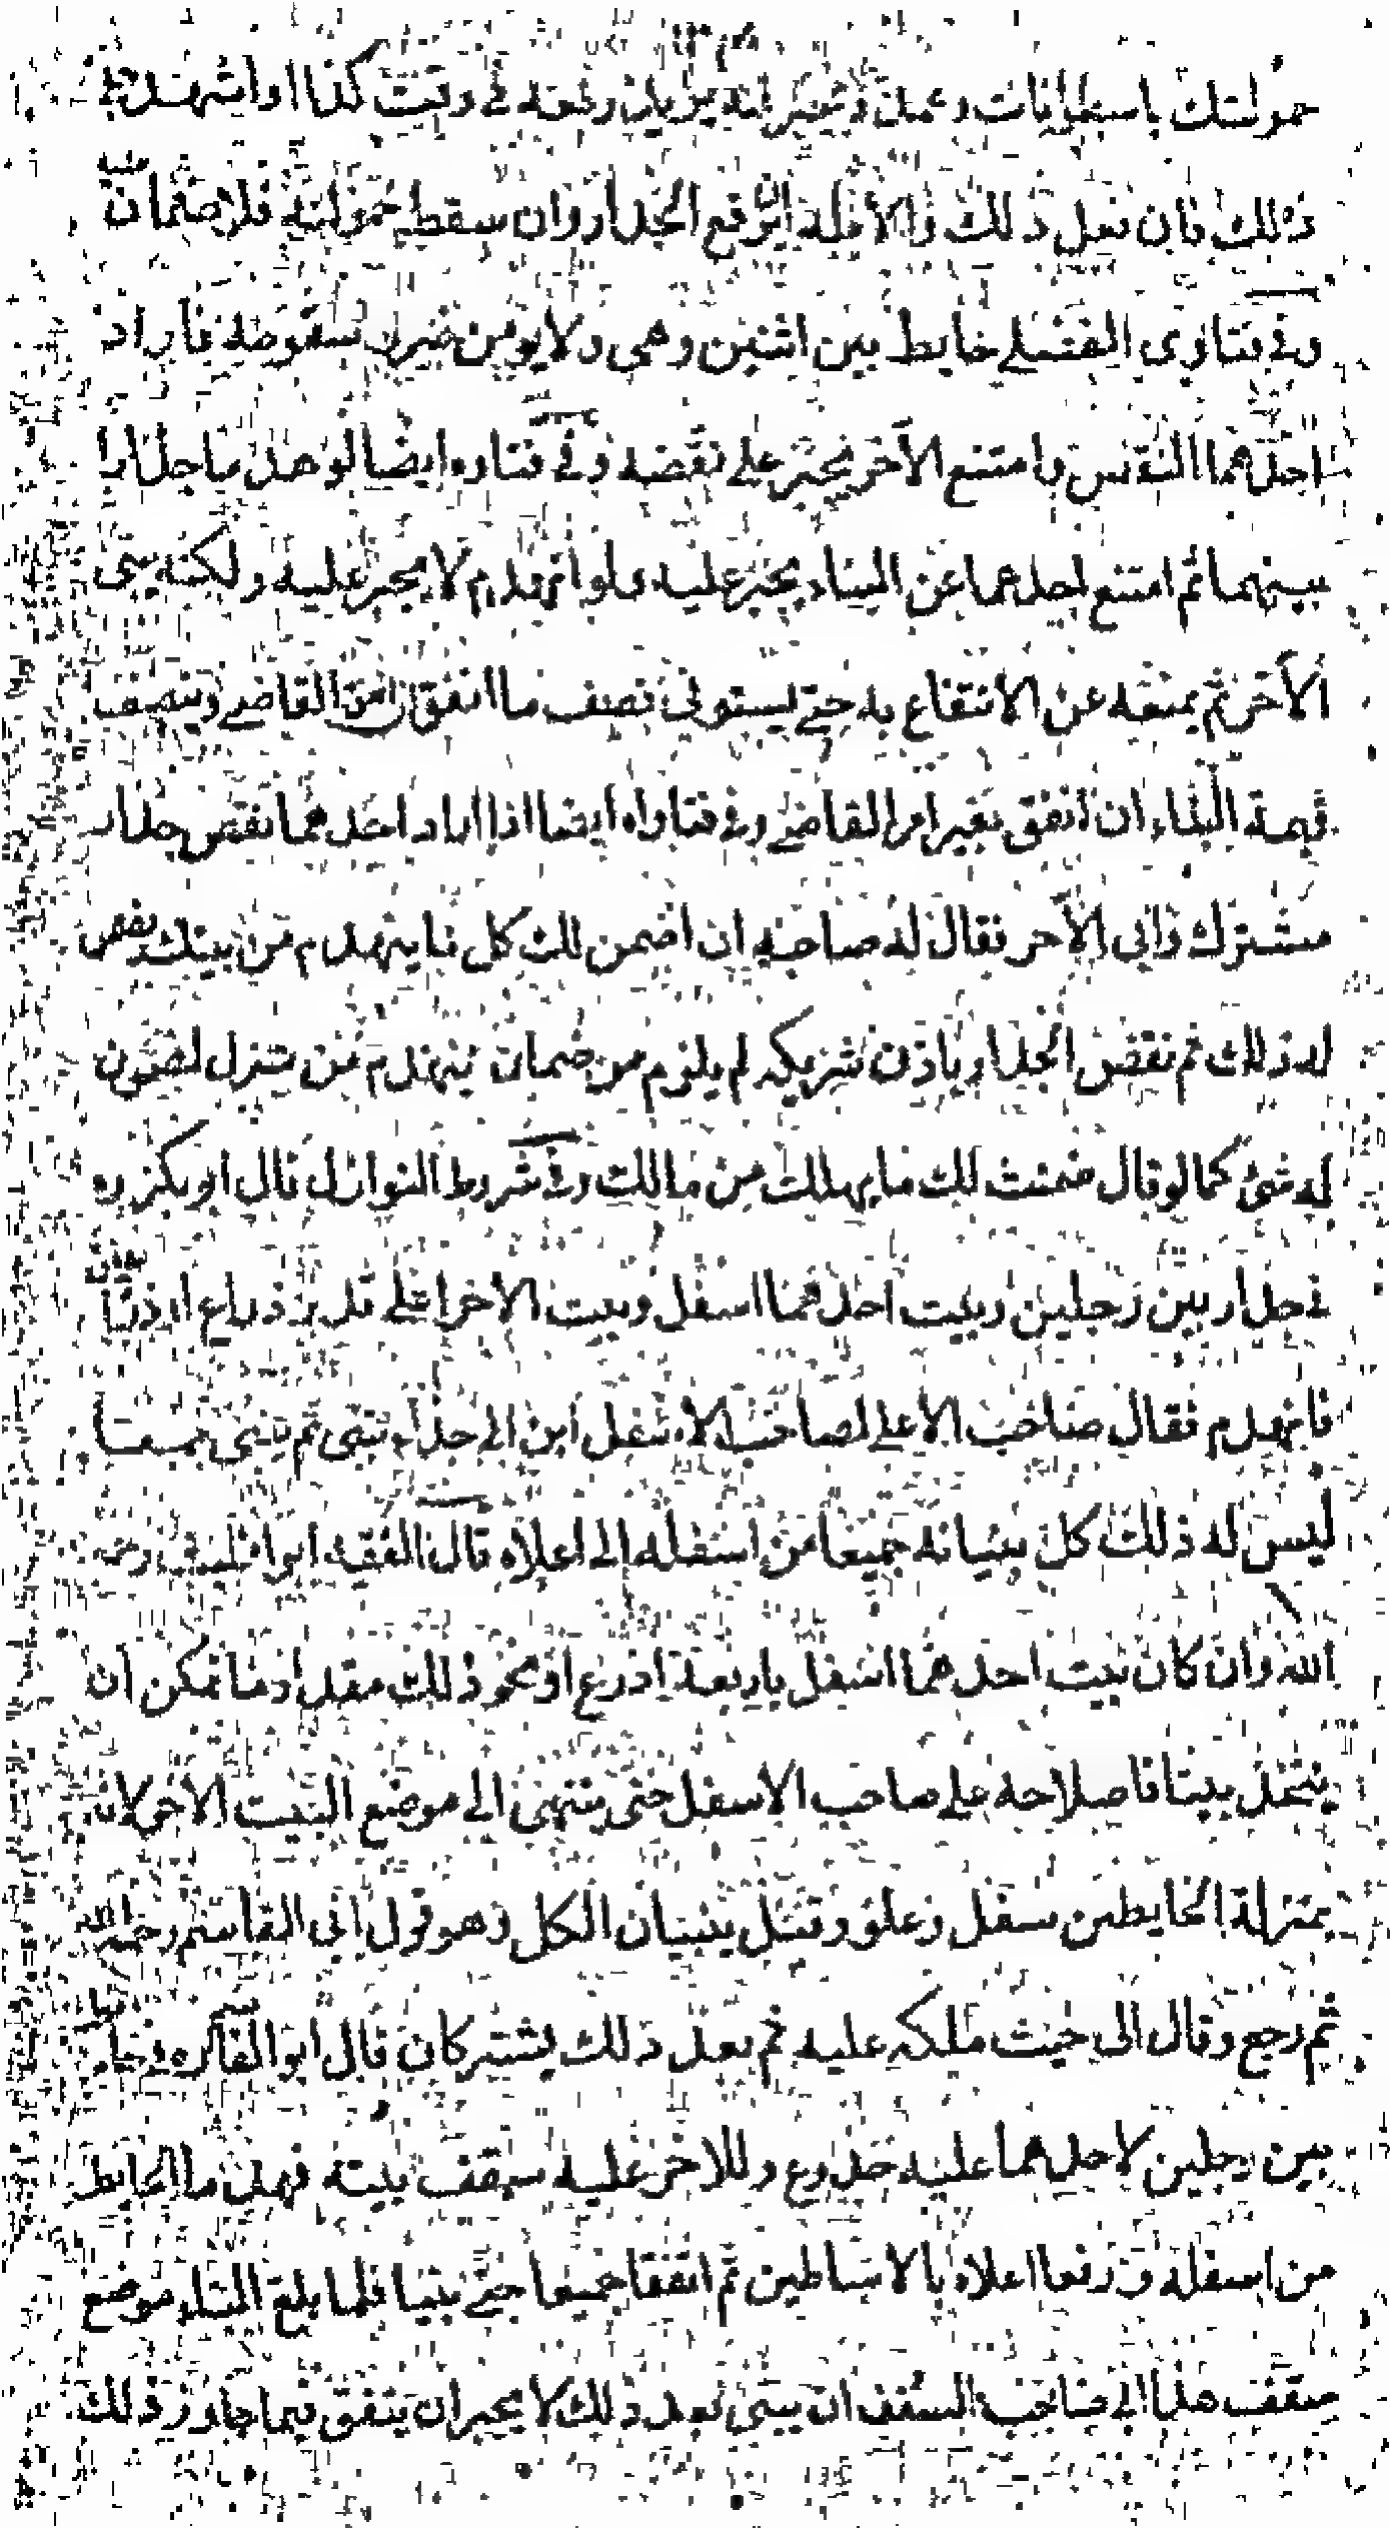 حمولتك باسطوانات وعمد ويخبره انه يريد رفعه في وقت كذا او اشهد على
ذلك فان فعل ذلك والا فله ان يرفع الجدار وان سقط حمولته فلا ضمان عليه
وفي فتاوى الفضلي حايط بين اثنين وهى ولا يؤمن ضرر سقوطه فاراد
احدهما النقض وامتنع الآخر يجبر على نقضه وفي فتاوه ايضا لو هدما جدارا
بينهما ثم امتنع احدهما عن البناء يجبر عليه ولو انهدم لا يجبر عليه ولكنه يبنى
الآخر ثم يمنعه عن الانتفاع به حتى يستوفي نصف ما انفق ان امر القاضي وبنصف
قيمة البناء ان انفق بغير امر القاضي وفي فتاواه ايضا اذا اراد احدهما نقض جدار
مشترك وابى الآخر فقال له صاحبه ان اضمن لك كل ما ينهدم من بيتك وضمن
له ذلك ثم نقض الجدار باذن شريكه لم يلزمه من ضمان ينهدم من منزل المضمون
له شئ كما لو قال ضمنت لك ما يهلك من مالك وفي شروط النوازل قال ابو بكر ره
في جدار بين رجلين وبيت احدهما اسفل وبيت الآخر اعلى قدر ذراع او ذراعان
فانهدم فقال صاحب الاعلى لصاحب الاسفل ابن الى حد ء بيتى ثم نبنى جميعا
ليس له ذلك كل بنيانه جميعا من اسفله الى اعلاه قال الفقيه ابو الليث رحمه
الله وان كان بيت احدهما اسفل باربعة اذرع او نحو ذلك مقدار ما يمكن ان
يتخذ بيتا فاصلاحه على صاحب الاسفل حتى ينتهى الى موضع البيت الآخر لان
بمنزلة الحايطين سفل وعلو وقيل يبنيان الكل وهو قول ابي القاسم رحمه الله
ثم رجع وقال الى حيث ملكه عليه ثم بعد ذلك يشتركان قال ابو القاسم ره في حايط
بين رجلين لاحدهما عليه جذوع وللاخر عليه سقف بيته فهدما الحايط
من اسفله ورفعا اعلاه بالاساطين ثم اتفقا جميعا حتى بنيا فلما بلغ البناء موضع
سقف هذا ابى صاحب السقف ان يبنى بعد ذلك لا يجبر ان ينفق فيما جاوز ذلك